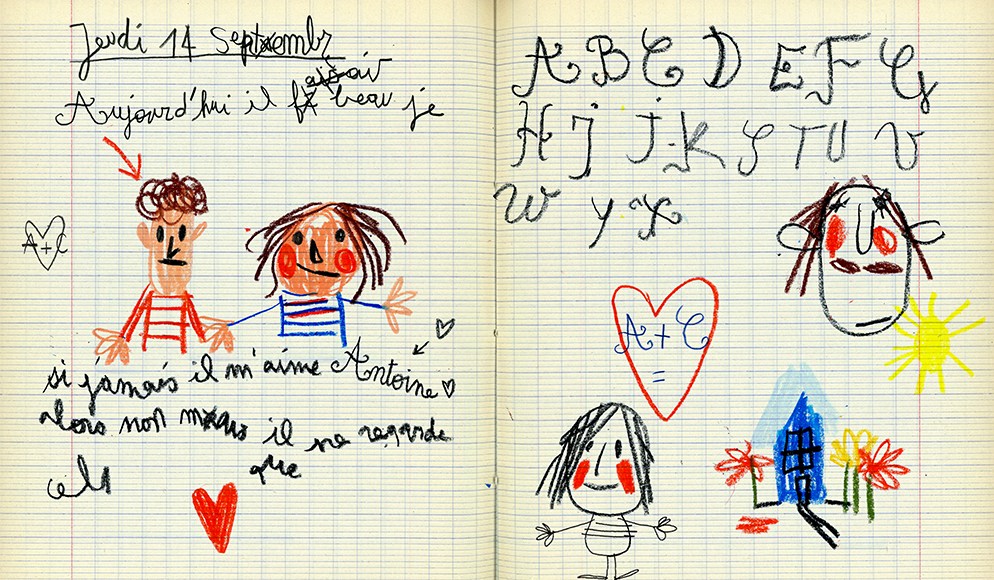 Jeudi 14 Septembr
Aujourd'hui il beau je
A+C
si j'amais il m'aime Antoine
alors non il ne regarde
que
A B C D E F G
H J K S T U V
W Y X
A + C
=